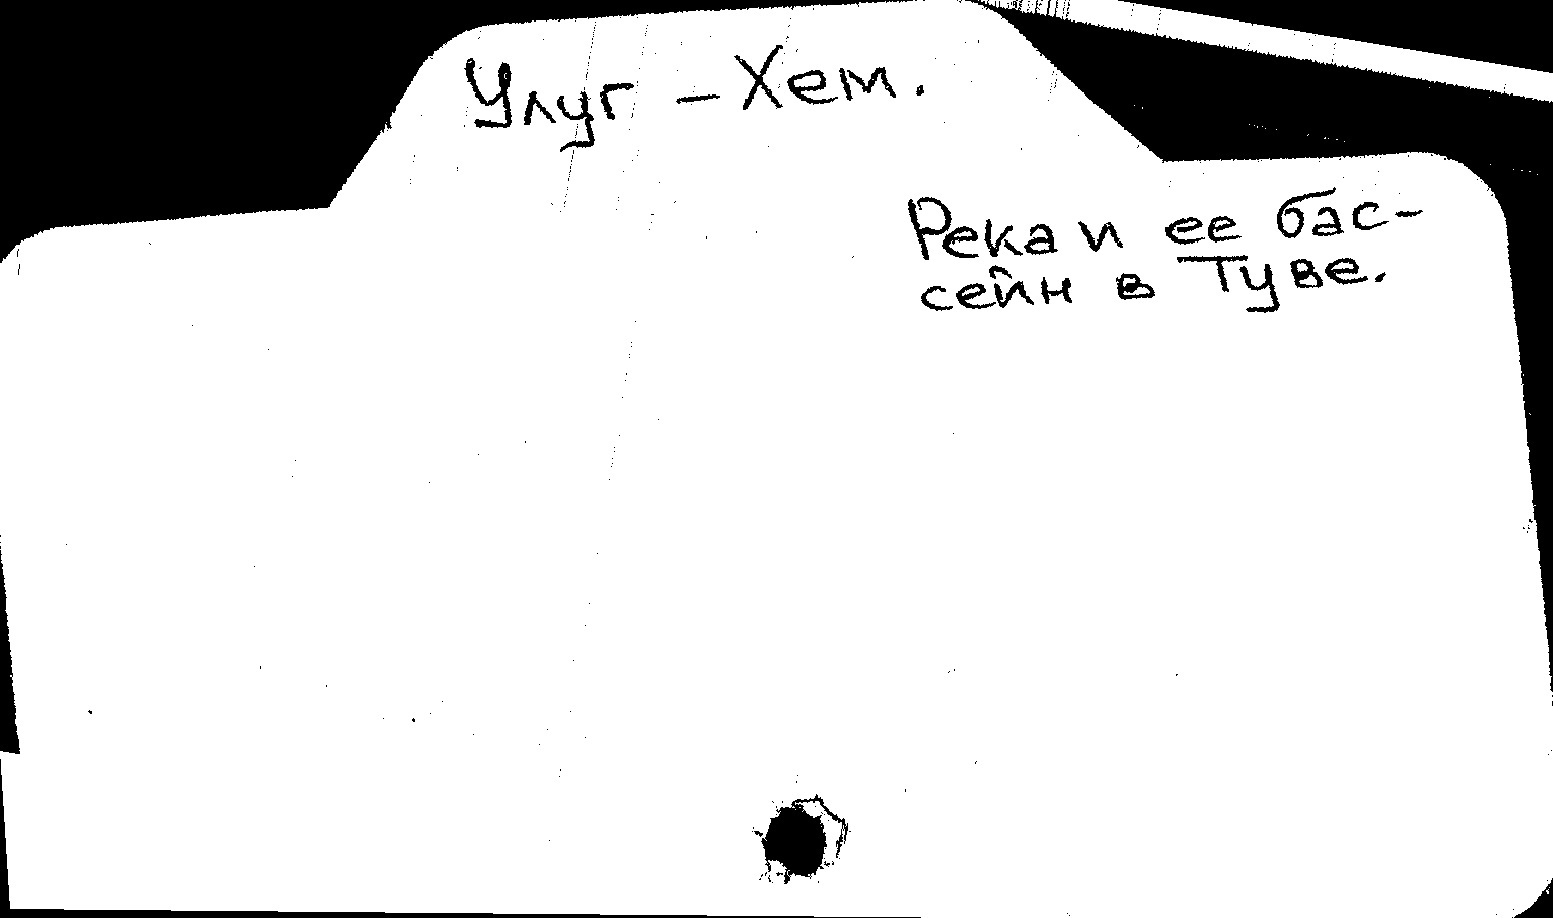 Улуг - Хем.
Река и ее бас-
сейн в Туве.